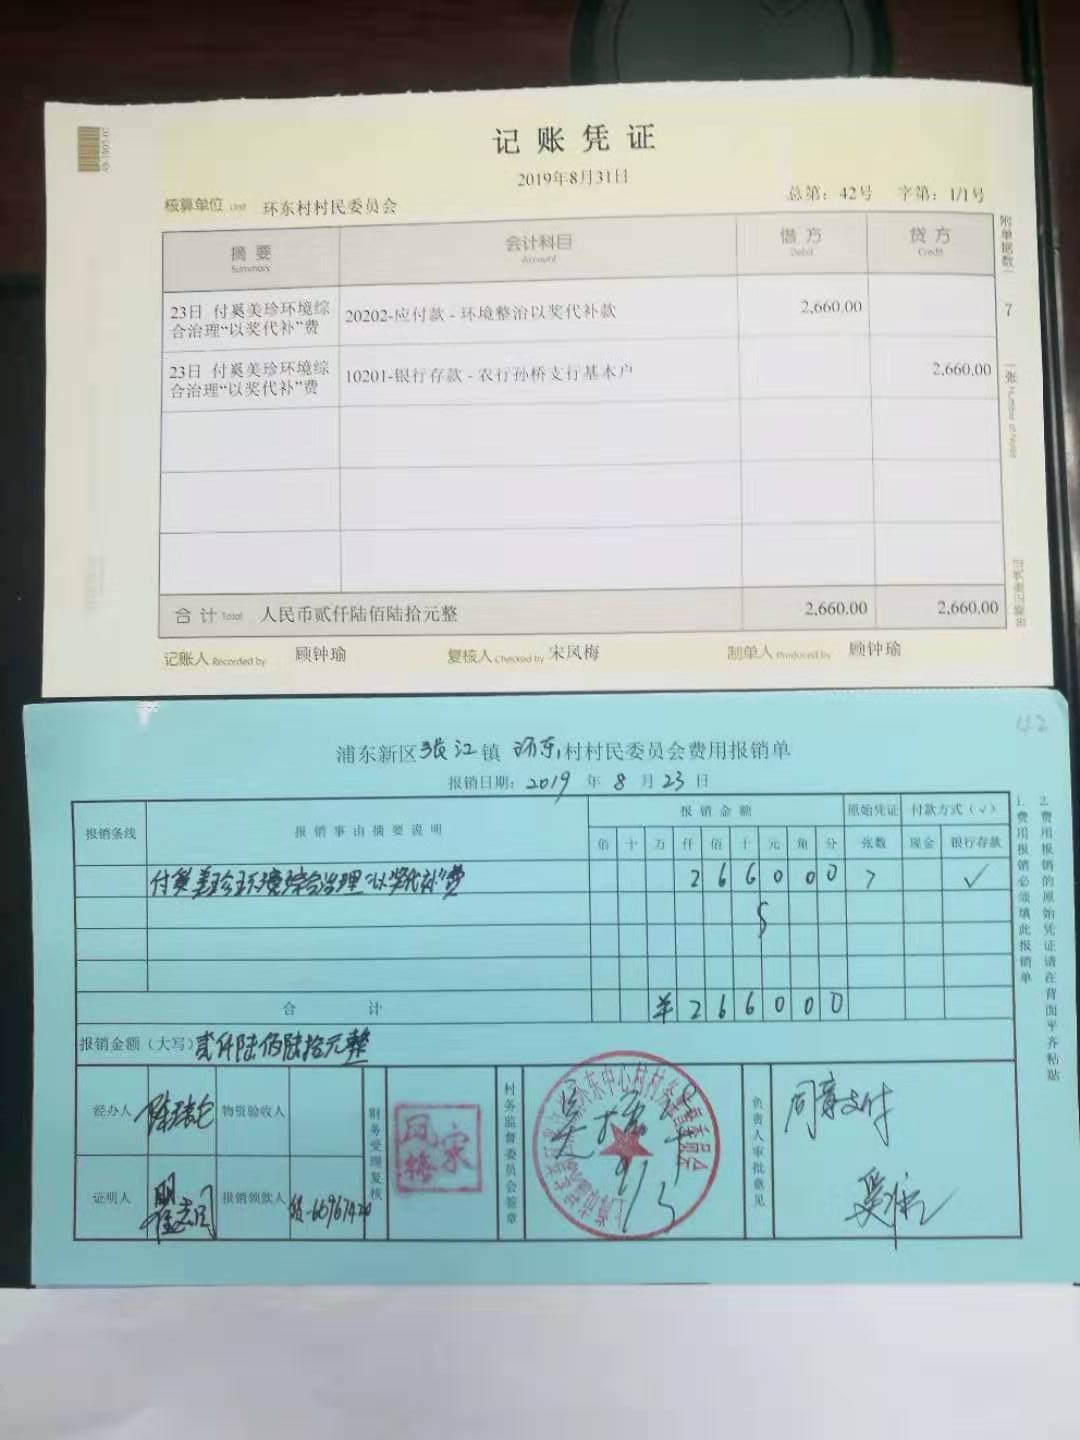 记账凭证
2019年8月31日
核算单位 Unit 环东村村民委员会 总第：42号 字第：1/1号
摘要 Summary 会计科目 Account 借方 Debit 贷方 Credit
附单据数 7 张 Number of
23日 付奚美珍环境综合治理“以奖代补”费 20202-应付款 - 环境整治以奖代补款 2,660.00
23日 付奚美珍环境综合治理“以奖代补”费 10201-银行存款 - 农行孙桥支行基本户 2,660.00
合计 Total 人民币贰仟陆佰陆拾元整 2,660.00 2,660.00
记账人 Recorded by 顾钟瑜 复核人 Checked by 宋凤梅 制单人 Produced by 顾钟瑜
42
浦东新区张江镇环东村村民委员会费用报销单
报销日期：2019年8月23日
报销条线 报销事由摘要说明 报销金额 原始凭证 付款方式（√）
佰 十 万 仟 佰 十 元 角 分 张数 现金 银行存款
付奚美珍环境综合治理“以奖代补”费 2 6 6 0 0 0 7 √
合计 ¥ 2 6 6 0 0 0
报销金额（大写）贰仟陆佰陆拾元整
经办人 物资验收人 财务受理复核 村务监督委员会签章 负责人审批意见 同意支付
证明人 报销领款人
宋凤梅
1.费用报销必须填此报销单
2.费用报销的原始凭证请在背面平齐粘贴